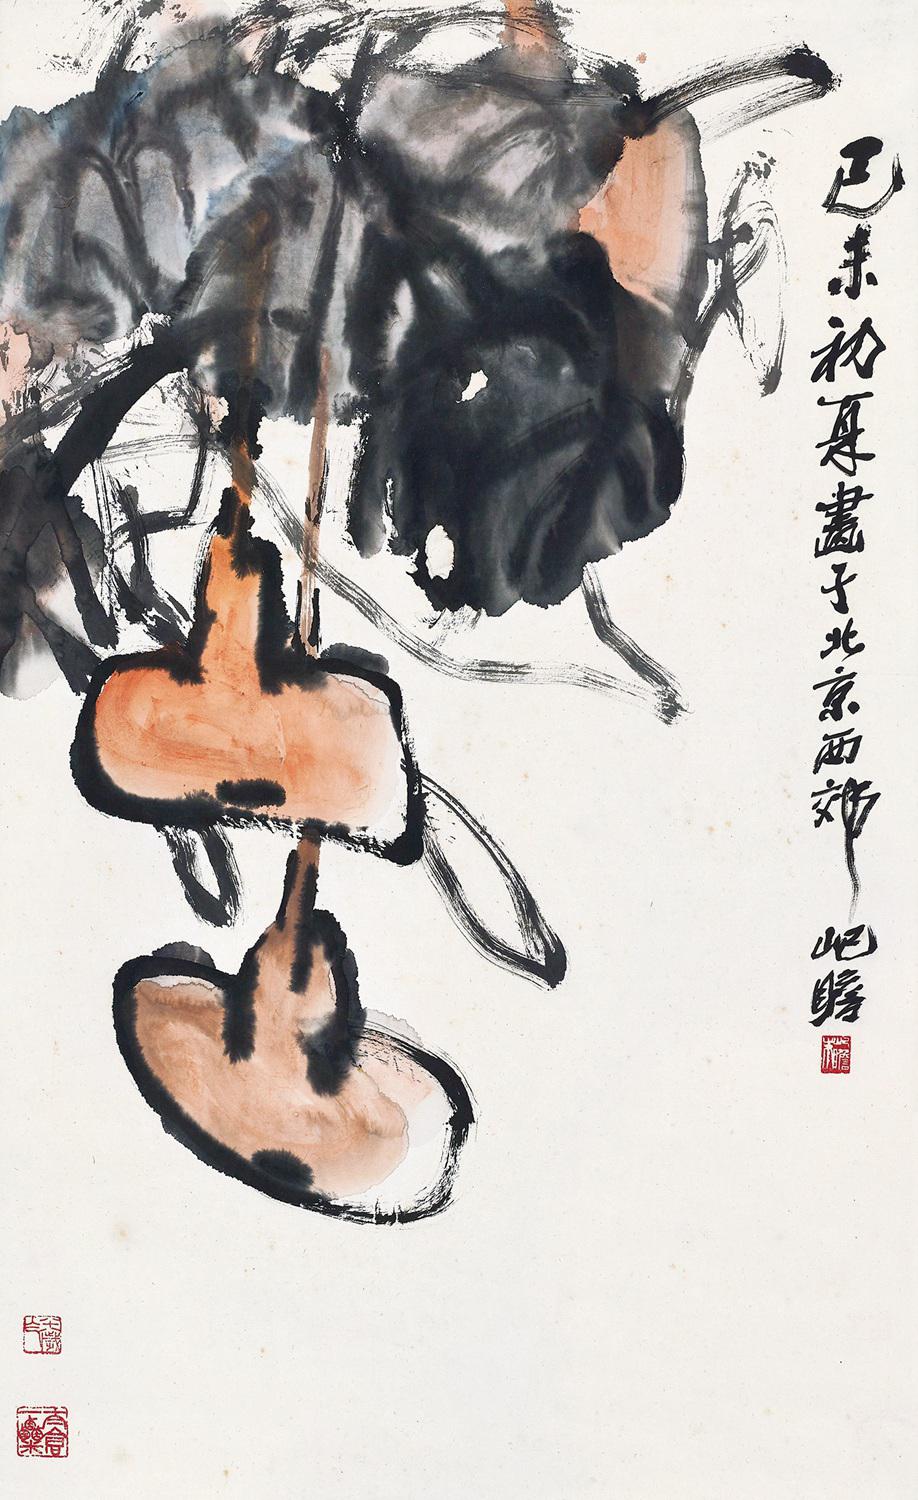 己未初夏畫于北京西郊
屺瞻